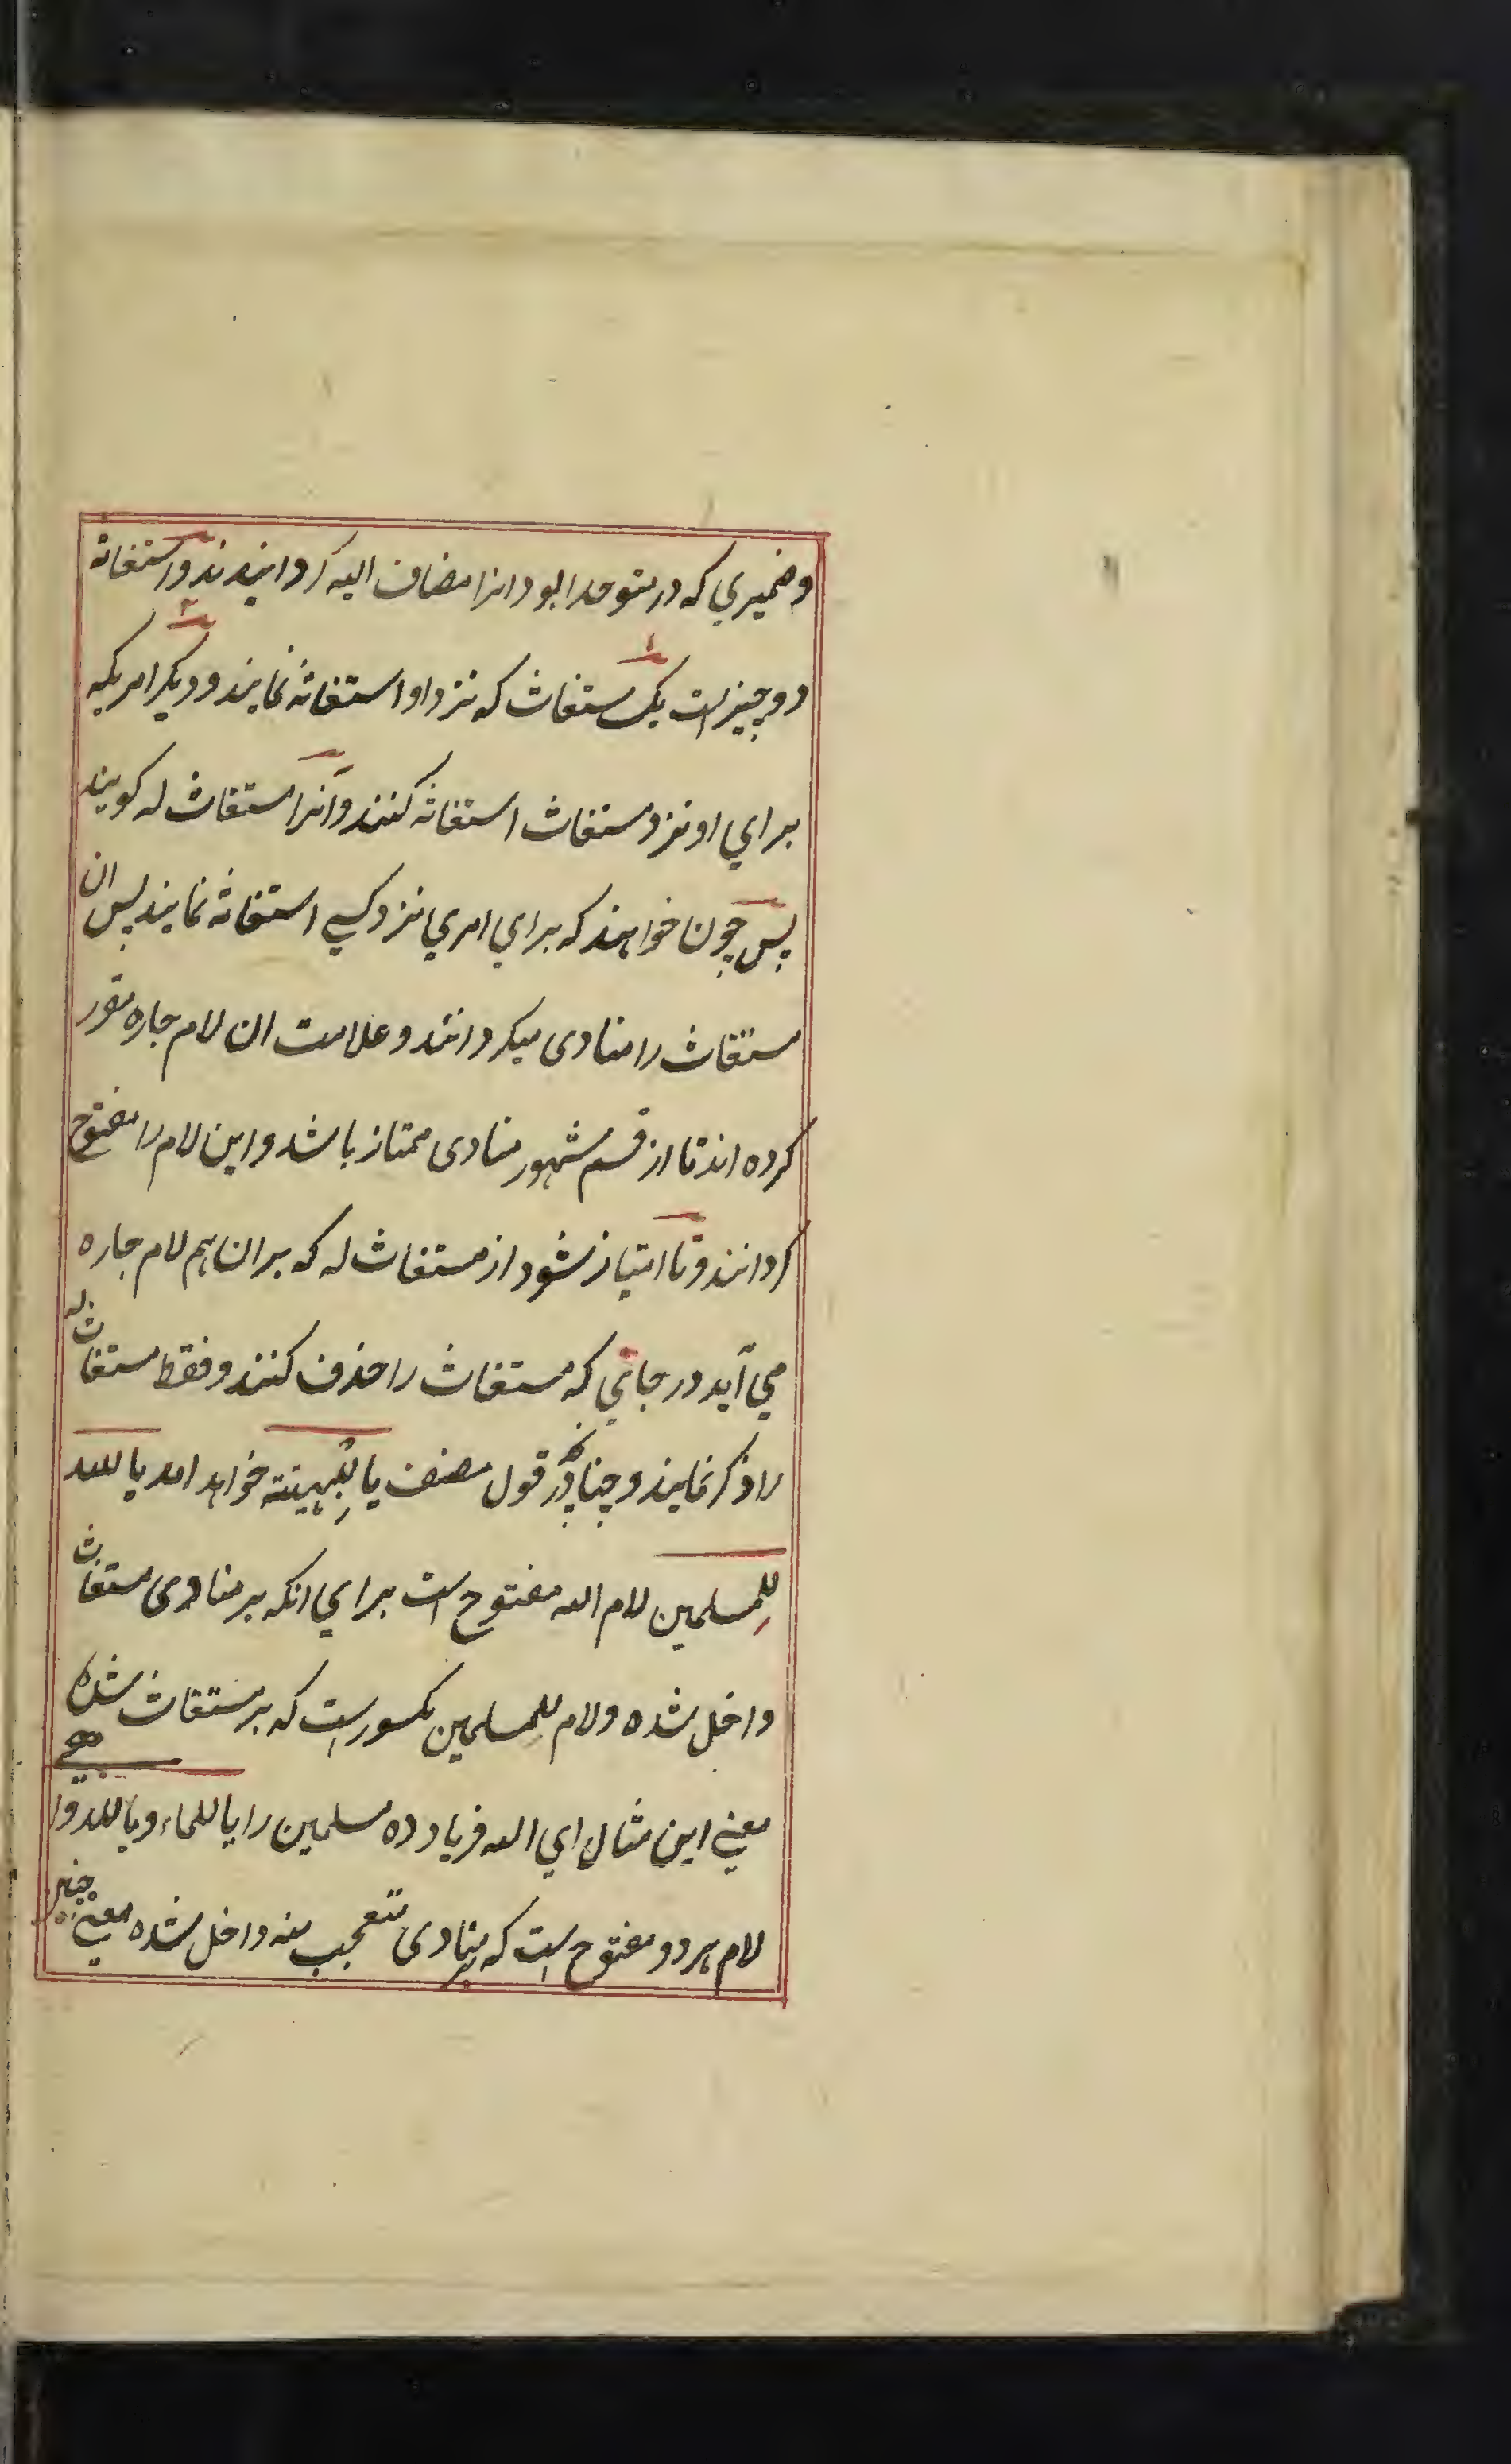 وضمیري که در متوحدا بود انرا مضاف الیه کردانیدند و استغاثه
دو چیز است یک مستغاث که نزد او استغاثه نمایند و دیکر امریکه
براي او نزد مستغاث استغاثه کنند و آنرا مستغاث له کویند
پس چون خواهند که براي امري نزد کسے استغاثه نمایند پس ان
مستغاث را منادی میکردانند و علامت ان لام جاره مقرر
کرده اند تا از قسم مشهور منادی ممتاز باشد و این لام را مفتوح
کردانند و تا امتیاز شود از مستغاث له که بران هم لام جاره
مي آید در جائي که مستغاث را حذف کنند و فقط مستغاث له
را ذکر نمایند و چنانکه در قول مصنف یا لِلْبَهِیتَةِ خواهد امد یا للّه
لِلمسلمین لام الله مفتوح است براي انکه بر منادی مستغاث
داخل شده و لام للمسلمین مکسور است که بر مستغاث شده
معنے این مثال اي الله فریاد ده مسلمین را یا للماء و یا للدوا
لام هر دو مفتوح است که بر منادی متعجب منه داخل شده معنے چنین